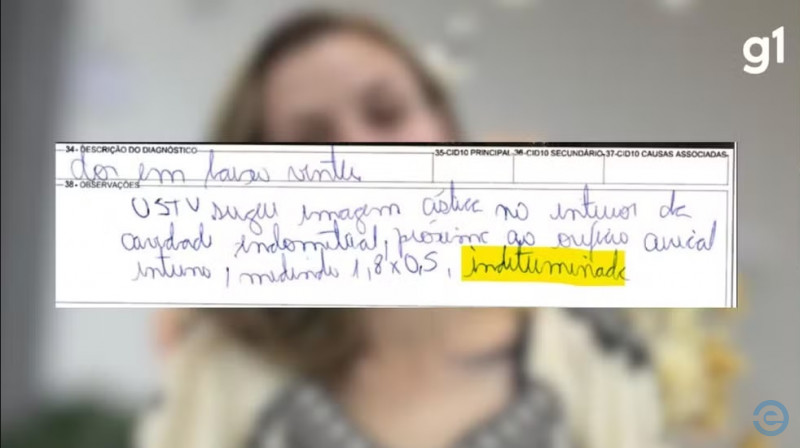 g1
34- DESCRIÇÃO DO DIAGNÓSTICO
35-CID10 PRINCIPAL 36-CID10 SECUNDÁRIO 37-CID10 CAUSAS ASSOCIADAS
dor em baixo ventre
38- OBSERVAÇÕES
USTV sugeu imagem cística no interior da
cavidad endometrial, próximo ao orifício cervical
interno, medindo 1,8x0,5, indeterminada